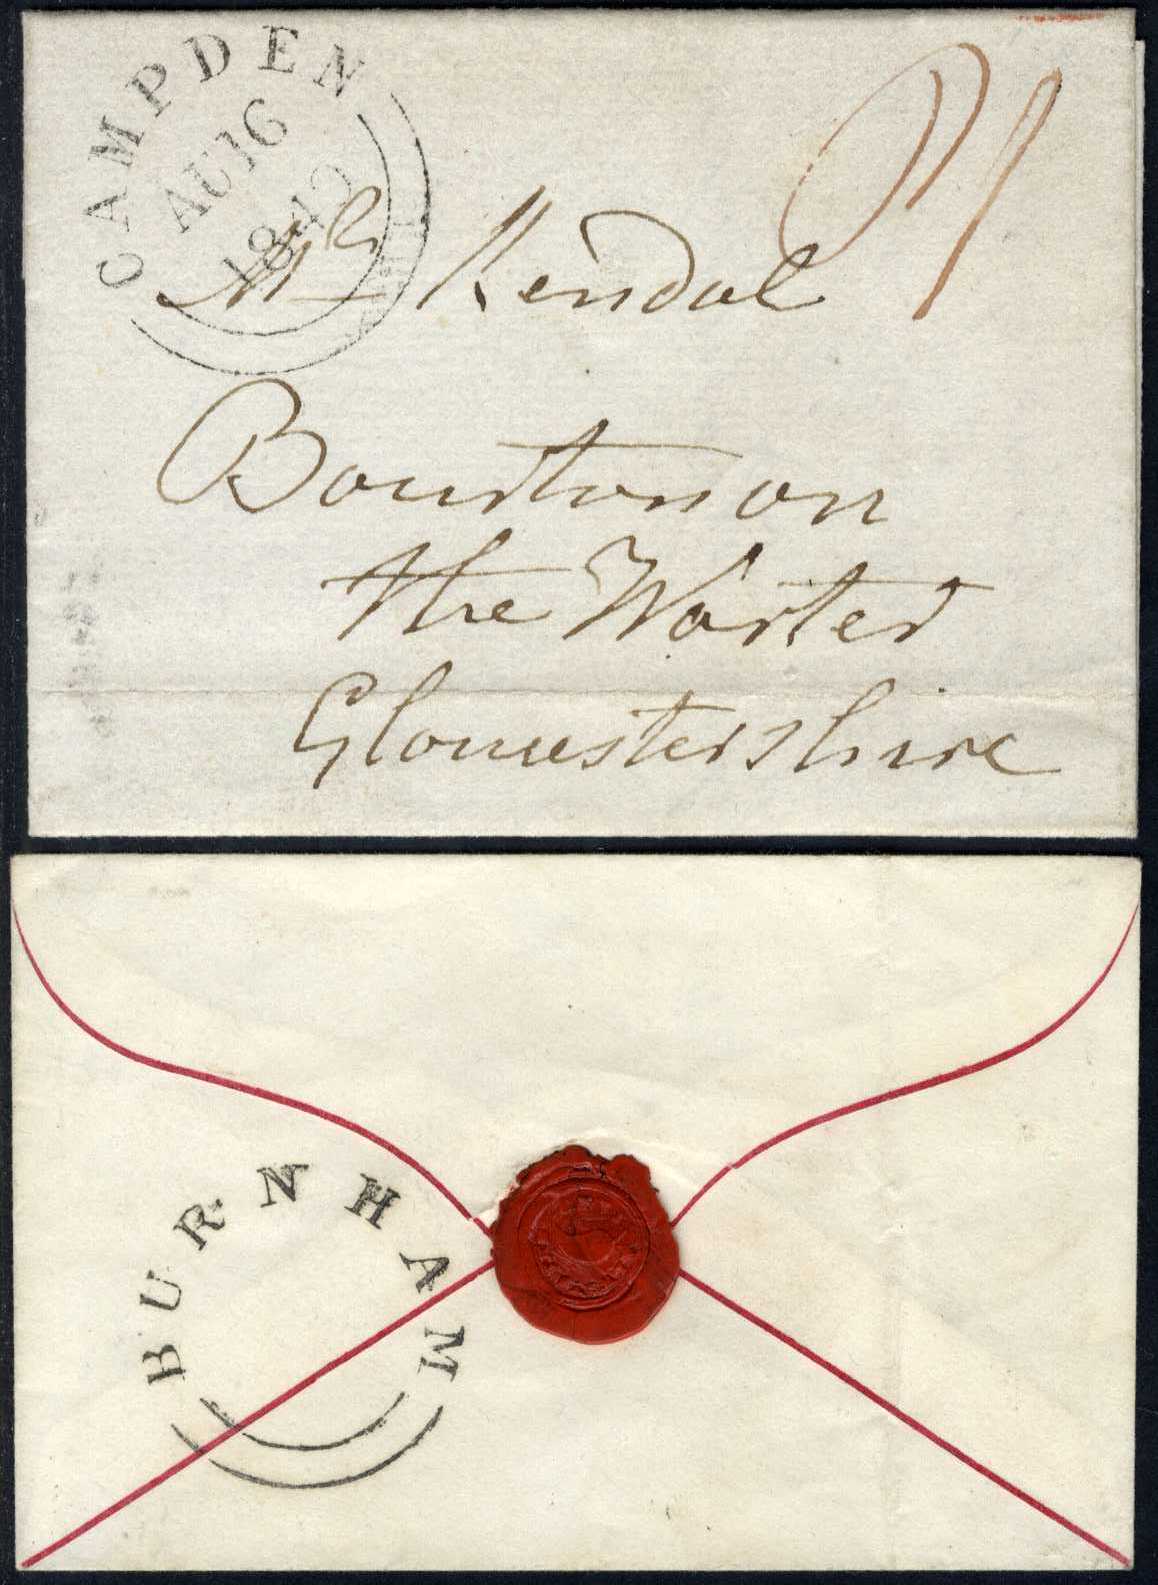 CAMPDEN
AU16
1840
Mrs Kendal
Bourton on
the Warter
Gloucestershire
BURNHAM